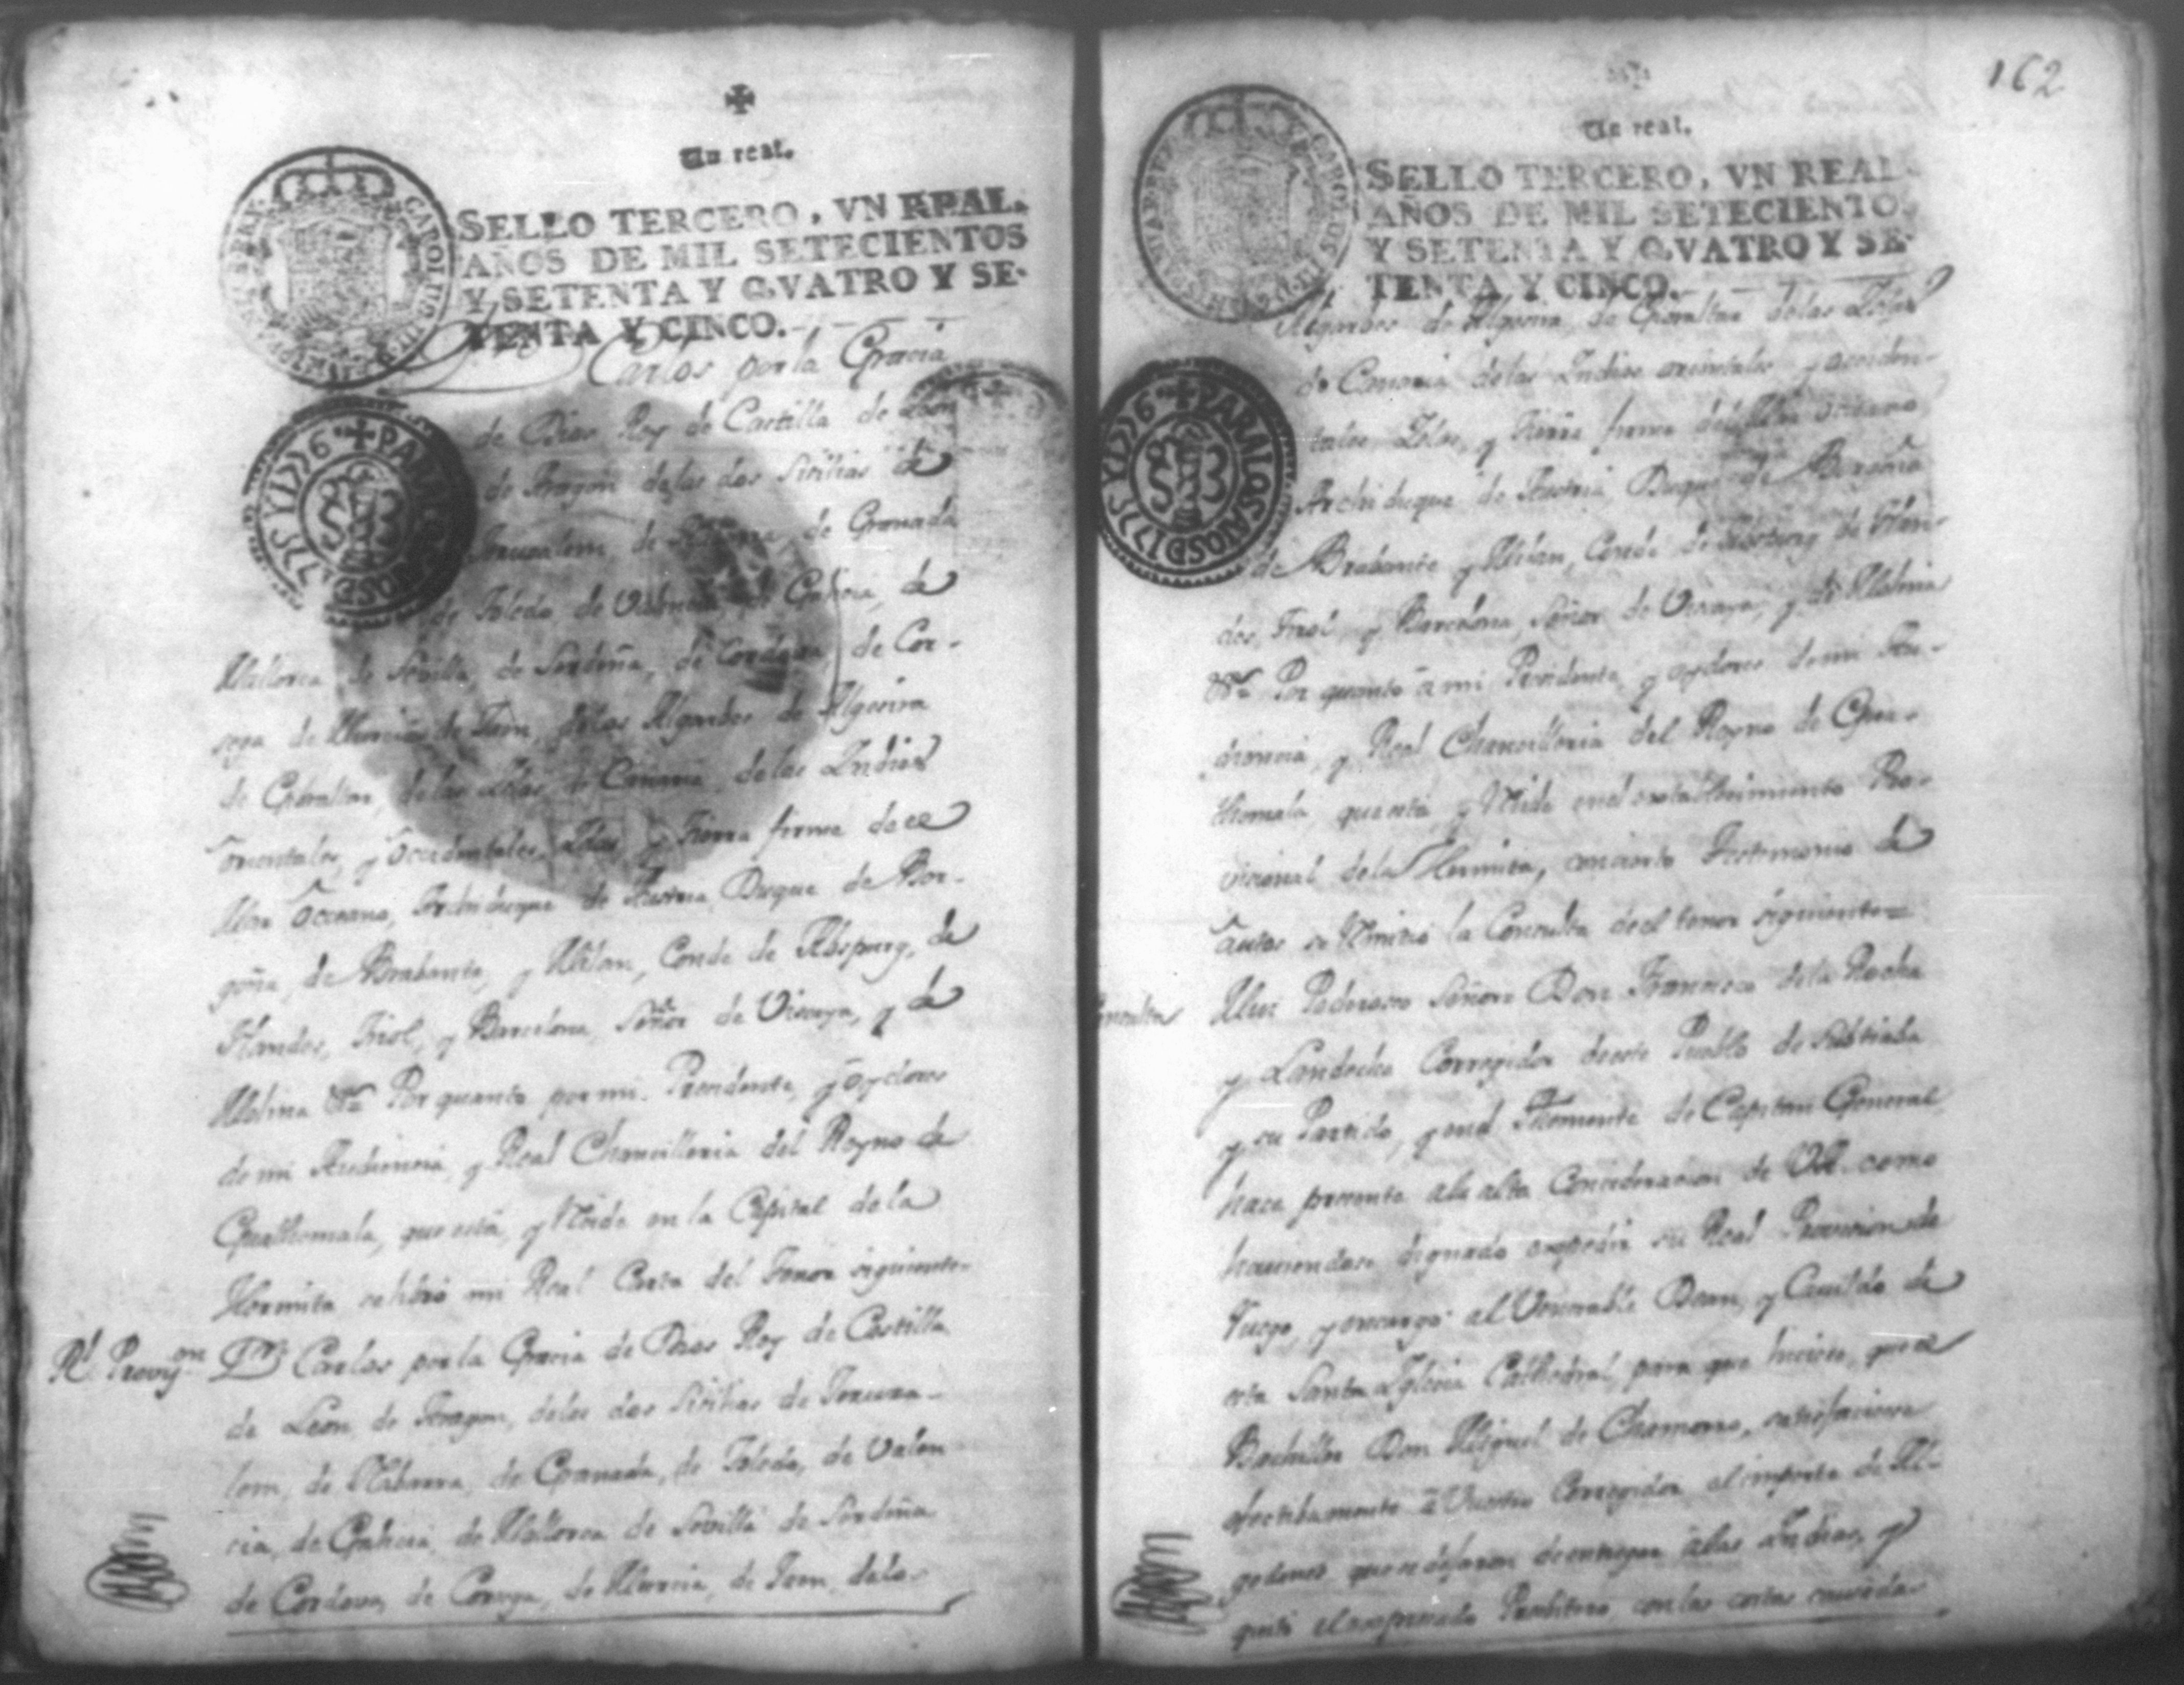 Un real.
SELLO TERCERO, VN REAL.
AÑOS DE MIL SETECIENTOS
Y SETENTA Y QVATRO Y SE-
TENTA Y CINCO.
Dn Carlos por la Gracia
de Dios Rey de Castilla de Leon
de Aragon de las dos Sicilias de
Jerusalem, de Navarra, de Granada
de Toledo de Valencia, de Galicia, de
Mallorca, de Sevilla, de Serdeña, de Cordova, de Cor-
sega de Murcia, de Jaen, de los Algarbes de Algecira
de Gibraltar, de las Islas de Canaria, de las Indias
orientales, y occidentales, Islas, y Tierra firme de el
Mar Occeano, Archiduque de Austria, Duque de Bor-
goña, de Brabante, y Milan, Conde de Abspurg, de
Flandes, Tirol, y Barcelona, Señor de Viscaya, y de
Molina &a Por quanto por mi Presidente, y oydores
de mi Audiencia, y Real Chancilleria del Reyno de
Guathemala, que está, y reside en la Capital de la
Hermita se libró mi Real Carta del Tenor siguiente
Rl. Proviçon Dn Carlos por la Gracia de Dios Rey de Castilla
de Leon, de Aragon, de las dos Sicilias de Jerusa-
lem, de Nabarra, de Granada, de Toledo, de Valen
cia, de Galicia, de Mallorca de Sevilla de Serdeña
de Cordova, de Corcega, de Murcia, de Jaen, de los
162
Un real.
SELLO TERCERO, VN REAL
AÑOS DE MIL SETECIENTOS
Y SETENTA Y QVATRO Y SE-
TENTA Y CINCO.
Algarbes de Algecira, de Gibraltar de las Islas
de Canaria de las Indias orientales y acciden-
tales Islas, y Tierra firme del Mar occeano
Archiduque de Austria, Duque de Borgoña
de Brabante y Milan, Conde de Abspurg de Flan-
des, Tirol, y Barcelona, Señor de Viscaya, y de Molina
&a Por quanto á mi Presidente, y oydores de mi Au-
diencia, y Real Chancilleria del Reyno de Gua-
themala, que está y reside en el establecimiento Pro-
vicional de la Hermita, con ciento Testimonio de
autos se remitió la Consulta de el tenor siguiente
Consulta Mui Poderoso Señor Don Francisco de la Rocha
y Landecho Corregidor de este Pueblo de Subtiaba
y su Partido, y en el Theniente de Capitan General
hace presente a la alta Concideracion de V.A. como
haviendose dignado expedir su Real Provicion de
ruego, y encargo al Venerable Dean, y Cavildo de
esta Santa Iglecia Cathedral, para que hiciese, que el
Bachiller Don Miguel de Chamorro, satisfaciese
efectibamente á Vuestro Corregidor el importe de Al-
godones que se dejaron de entregar á las Indias, y
quitó el expresado Presbitero con las costas causadas
PARA LOS AÑOS D 1775 Y 1776
PARA LOS AÑOS D 1775 Y 1776